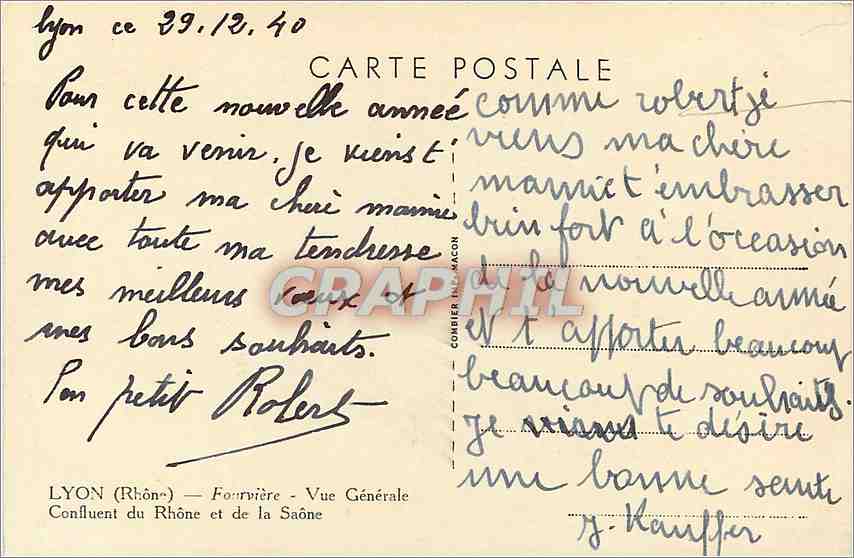 Lyon ce 29.12.40
CARTE POSTALE
Pour cette nouvelle année
qui va venir. je viens t'
apporter ma chère mamie
avec toute ma tendresse
mes meilleurs voeux et
mes bons souhaits.
Ton petit Robert
LYON (Rhône) — Fourvière - Vue Générale
Confluent du Rhône et de la Saône
COMBIER IMP. MACON
comme robert je
viens ma chère
mamie t'embrasser
bien fort à l'occasion
de la nouvelle année
et t'apporter beaucoup
beaucoup de souhaits.
je te désire
une bonne sante
J. Kauffer
CRAPHIL